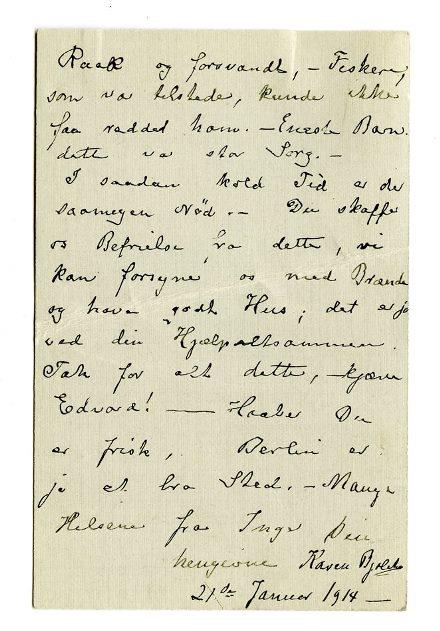 Raak og forsvandt, – Fiskere,
som va tilstede, kunde ikke
faa reddet ham. – Eneste Barn.
dette va stor Sorg. –
I saadan kold Tid er der
saamegen Nød. – Du skaffe
os Befrielse fra dette, vi
kan forsyne os med Brænde
og have godt Hus; det er jo
ved din Hjælp altsammen.
Tak for alt dette, – kjære
Edvard! — Haaber Du
er frisk, Berlin er
jo et bra Sted. – Mange
Hilsene fra Inger Din
hengivne Karen Bjølstad
21de Januar 1914 —